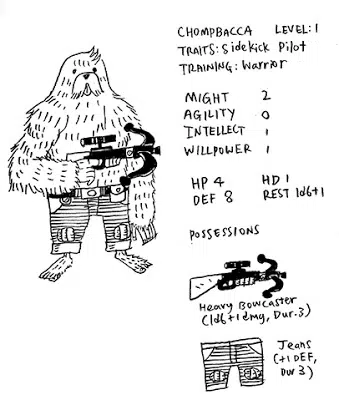 CHOMPBACCA LEVEL: 1
TRAITS: Sidekick Pilot
TRAINING: Warrior
MIGHT 2
AGILITY 0
INTELLECT 1
WILLPOWER 1
HP 4 HD 1
DEF 8 REST 1d6+1
POSSESSIONS
Heavy Bowcaster
(1d6+1 dmg, Dur.3)
Jeans
(+1 DEF,
Dur 3)